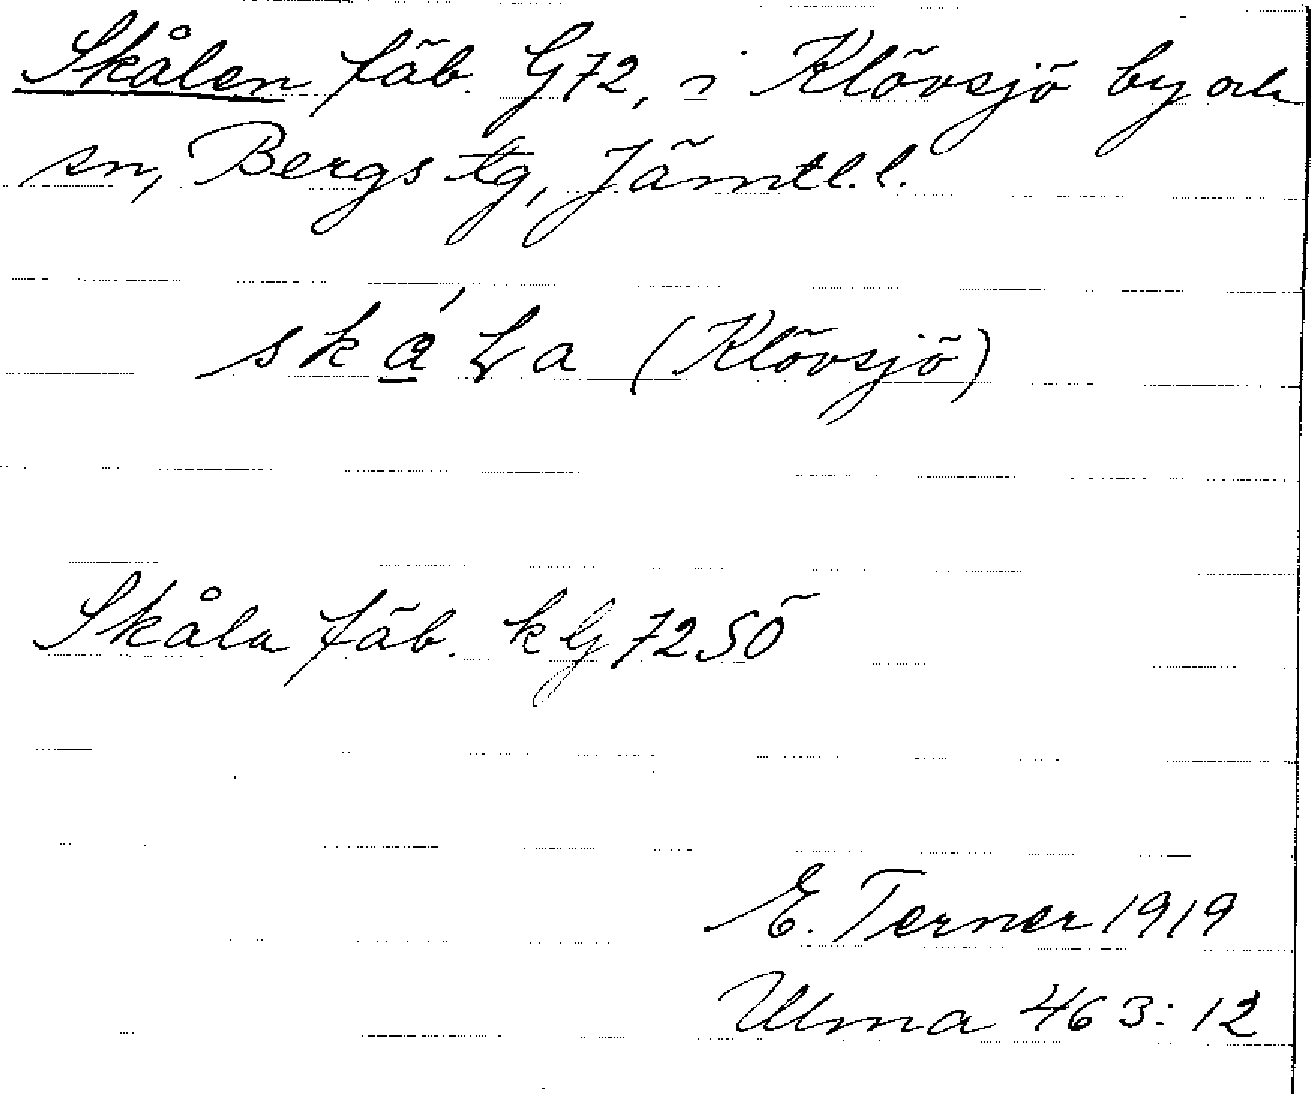 Skålen fäb. G72, i Klövsjö by och
sn, Bergs tg, Jämtl.l.
skáLa (Klövsjö)
Skåla fäb. kG72SÖ
E. Terner 1919
Ulma 463:12